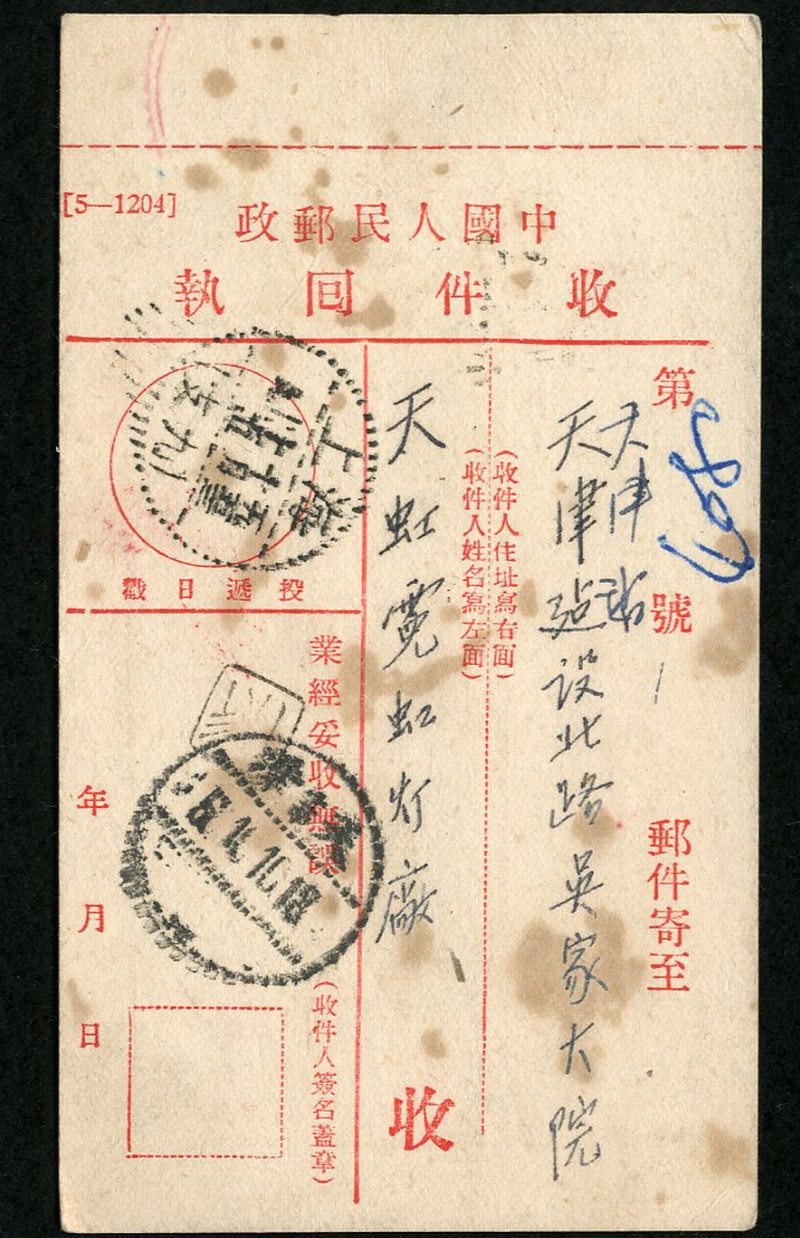 [5—1204]
中國人民郵政
收件回執
第
號
郵件寄至
天津站
天津建设北路吳家大院
(收件人住址寫右面)
(收件人姓名寫左面)
天虹霓虹灯廠
收
上海
投遞日戳
業經妥收無誤
(收件人簽名蓋章)
年月日